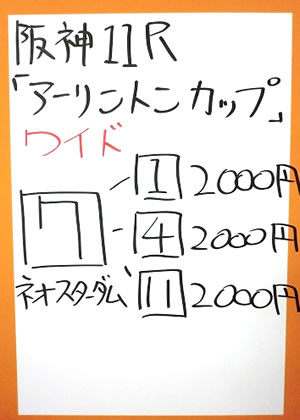 阪神11R
「アーリントンカップ」
ワイド
1 2000円
7 4 2000円
ネオスターダム 11 2000円